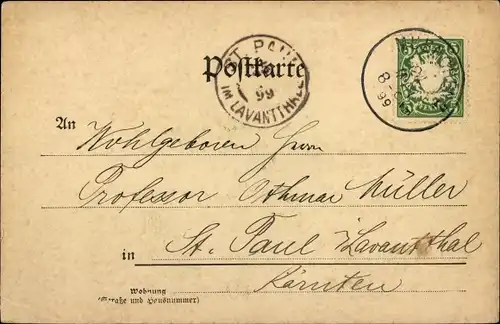 Postkarte
ST. PAUL
99
IM LAVANTTHALE
An Wohlgeboren Herrn
Professor Othmar Müller
in St. Paul Lavantthal
Kärnten
Wohnung
(Straße und Hausnummer)